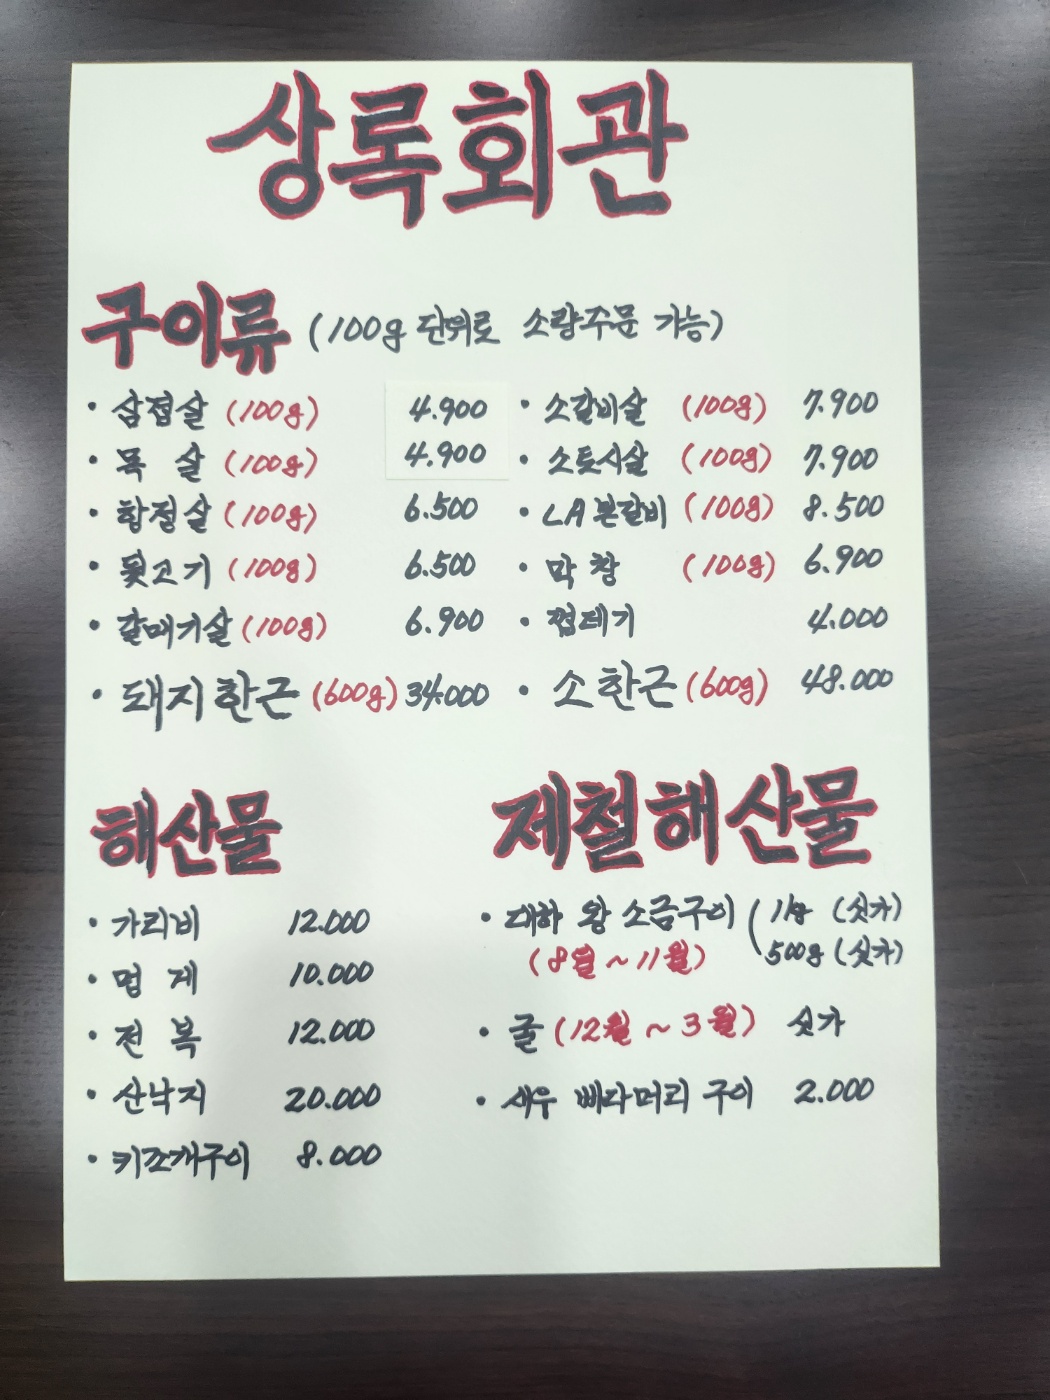 상록회관
구이류 (100g 단위로 소량주문 가능)
· 삼겹살 (100g) 4.900
· 목 살 (100g) 4.900
· 항정살 (100g) 6.500
· 뒷고기 (100g) 6.500
· 갈매기살 (100g) 6.900
· 돼지한근 (600g) 34.000
· 소갈비살 (100g) 7.900
· 소토시살 (100g) 7.900
· LA본갈비 (100g) 8.500
· 막창 (100g) 6.900
· 껍데기 4.000
· 소한근 (600g) 48.000
해산물
· 가리비 12.000
· 멍 게 10.000
· 전 복 12.000
· 산낙지 20.000
· 키조개구이 8.000
제철해산물
· 대하 왕 소금구이 ( 1kg (싯가)
(8월 ~ 11월) 500g (싯가)
· 굴 (12월 ~ 3월) 싯가
· 새우 삐다머리 구이 2.000